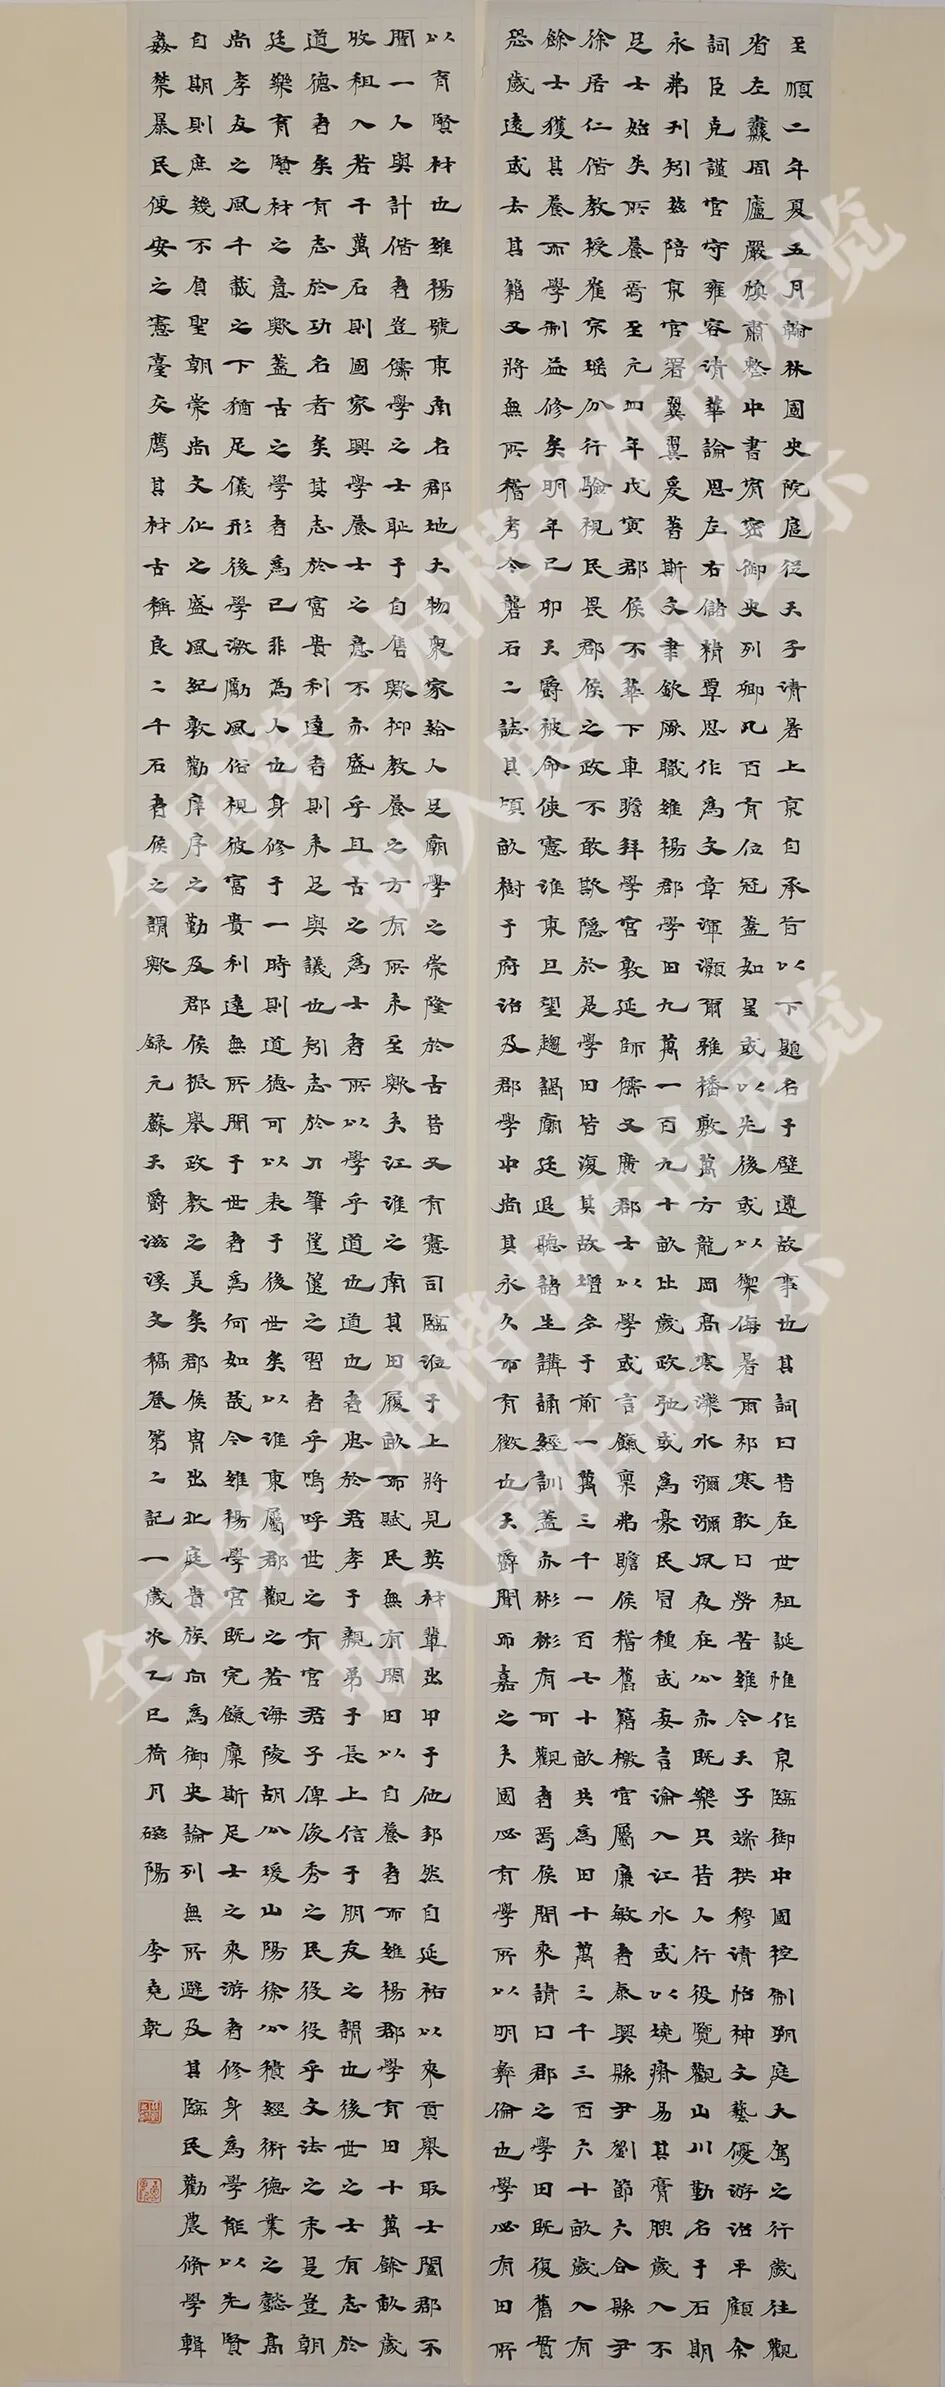 至順二年夏五月翰林國史院扈從天子清暑上京自承旨以下題名于壁遵故事也其詞曰昔在世祖誕惟作京臨御中國控制朔庭大駕之行歲往觀
省左纛周廬嚴惟肅整中書宥密御史列卿凡百有位冠蓋如星或以先後或以禦侮暑雨祁寒敢曰勞苦維今天子端拱穆清怡神文藝優游治平顧余
詞臣克謹官守雍容清華論思左右儲精覃思作為文章渾灝爾雅播敷萬方龍岡高寒灤水瀰瀰夙夜在公亦既樂只昔人行役覽觀山川勤名于石期
永弗刊矧茲陪京官署翼翼爰著斯文聿欽厥職維揚郡學田九萬一百九十畝比歲政弛或為豪民冒種或妄言淪入江水或以墝瘠易其膏腴歲入不
足士始失所養焉至元四年戊寅郡侯不華下車瞻拜學宮敦延師儒又廣郡士以學或言餼稟弗贍侯稽舊籍檄官屬廉敏者泰興縣尹劉節六合縣尹
徐居仁偕教授崔宗瑶分行驗視民畏郡侯之政不敢欺隱於是學田皆復其故增多于前一萬三千一百七十畝共為田十萬三千三百六十畝歲入有
餘士獲其養而學制益修矣明年己卯天爵被命使憲淮東旦望趨謁廟廷退聽諸生講誦經訓蓋亦彬彬有可觀者焉侯聞來請曰郡之學田既復舊貫
恐歲遠或去其籍又將無所稽考今礱石二誌其頃畝樹于府治及郡學中尚其永久而有徵也天爵聞而嘉之夫國必有學所以明彝倫也學必有田所
以育賢材也維揚號東南名郡地大物衆家給人足廟學之崇隆於古昔又有憲司臨涖于上將見英材輩出甲于他邦然自延祐以來貢舉取士闔郡不
聞一人與計偕者豈儒學之士耻于自售歟抑教養之方有所未至歟夫江淮之南其田履畝而賦民無有閑田以自養者而維揚郡學有田十萬餘畝歲
收租入若干萬石則國家興學養士之意不亦盛乎且古之為士者所以學乎道也道也者忠於君孝于親弟于長上信于朋友之謂也後世之士有志於
道德者矣有志於功名者矣其志於富貴利達者則未足與議也矧志於刀筆筐篋之習者乎嗚呼世之有官君子俾俊秀之民役役乎文法之末豈朝
廷樂育賢材之意歟蓋古之學者為己非為人也身修于一時則道德可以表于後世矣以淮東屬郡觀之若海陵胡公瑗山陽徐公積經術德業之懿高
尚孝友之風千載之下猶足儀形後學激勵風俗視彼富貴利達無所聞于世者為何如哉今維揚學官既完餼廩斯足士之來游者修身為學能以先賢
自期則庶幾不負聖朝崇尚文化之盛風紀敦勸庠序之勤及郡侯振舉政教之美矣郡侯胄出北庭貴族向為御史論列無所避及其臨民勸農脩學輯
姦禁暴民便安之憲臺交薦其材古稱良二千石者侯之謂歟 錄元蘇天爵滋溪文稿卷第二記一歲次乙巳荷月磁陽 李堯乾
全国第三届楷书作品展览
拟入展作品公示
全国第三届楷书作品展览
拟入展作品公示